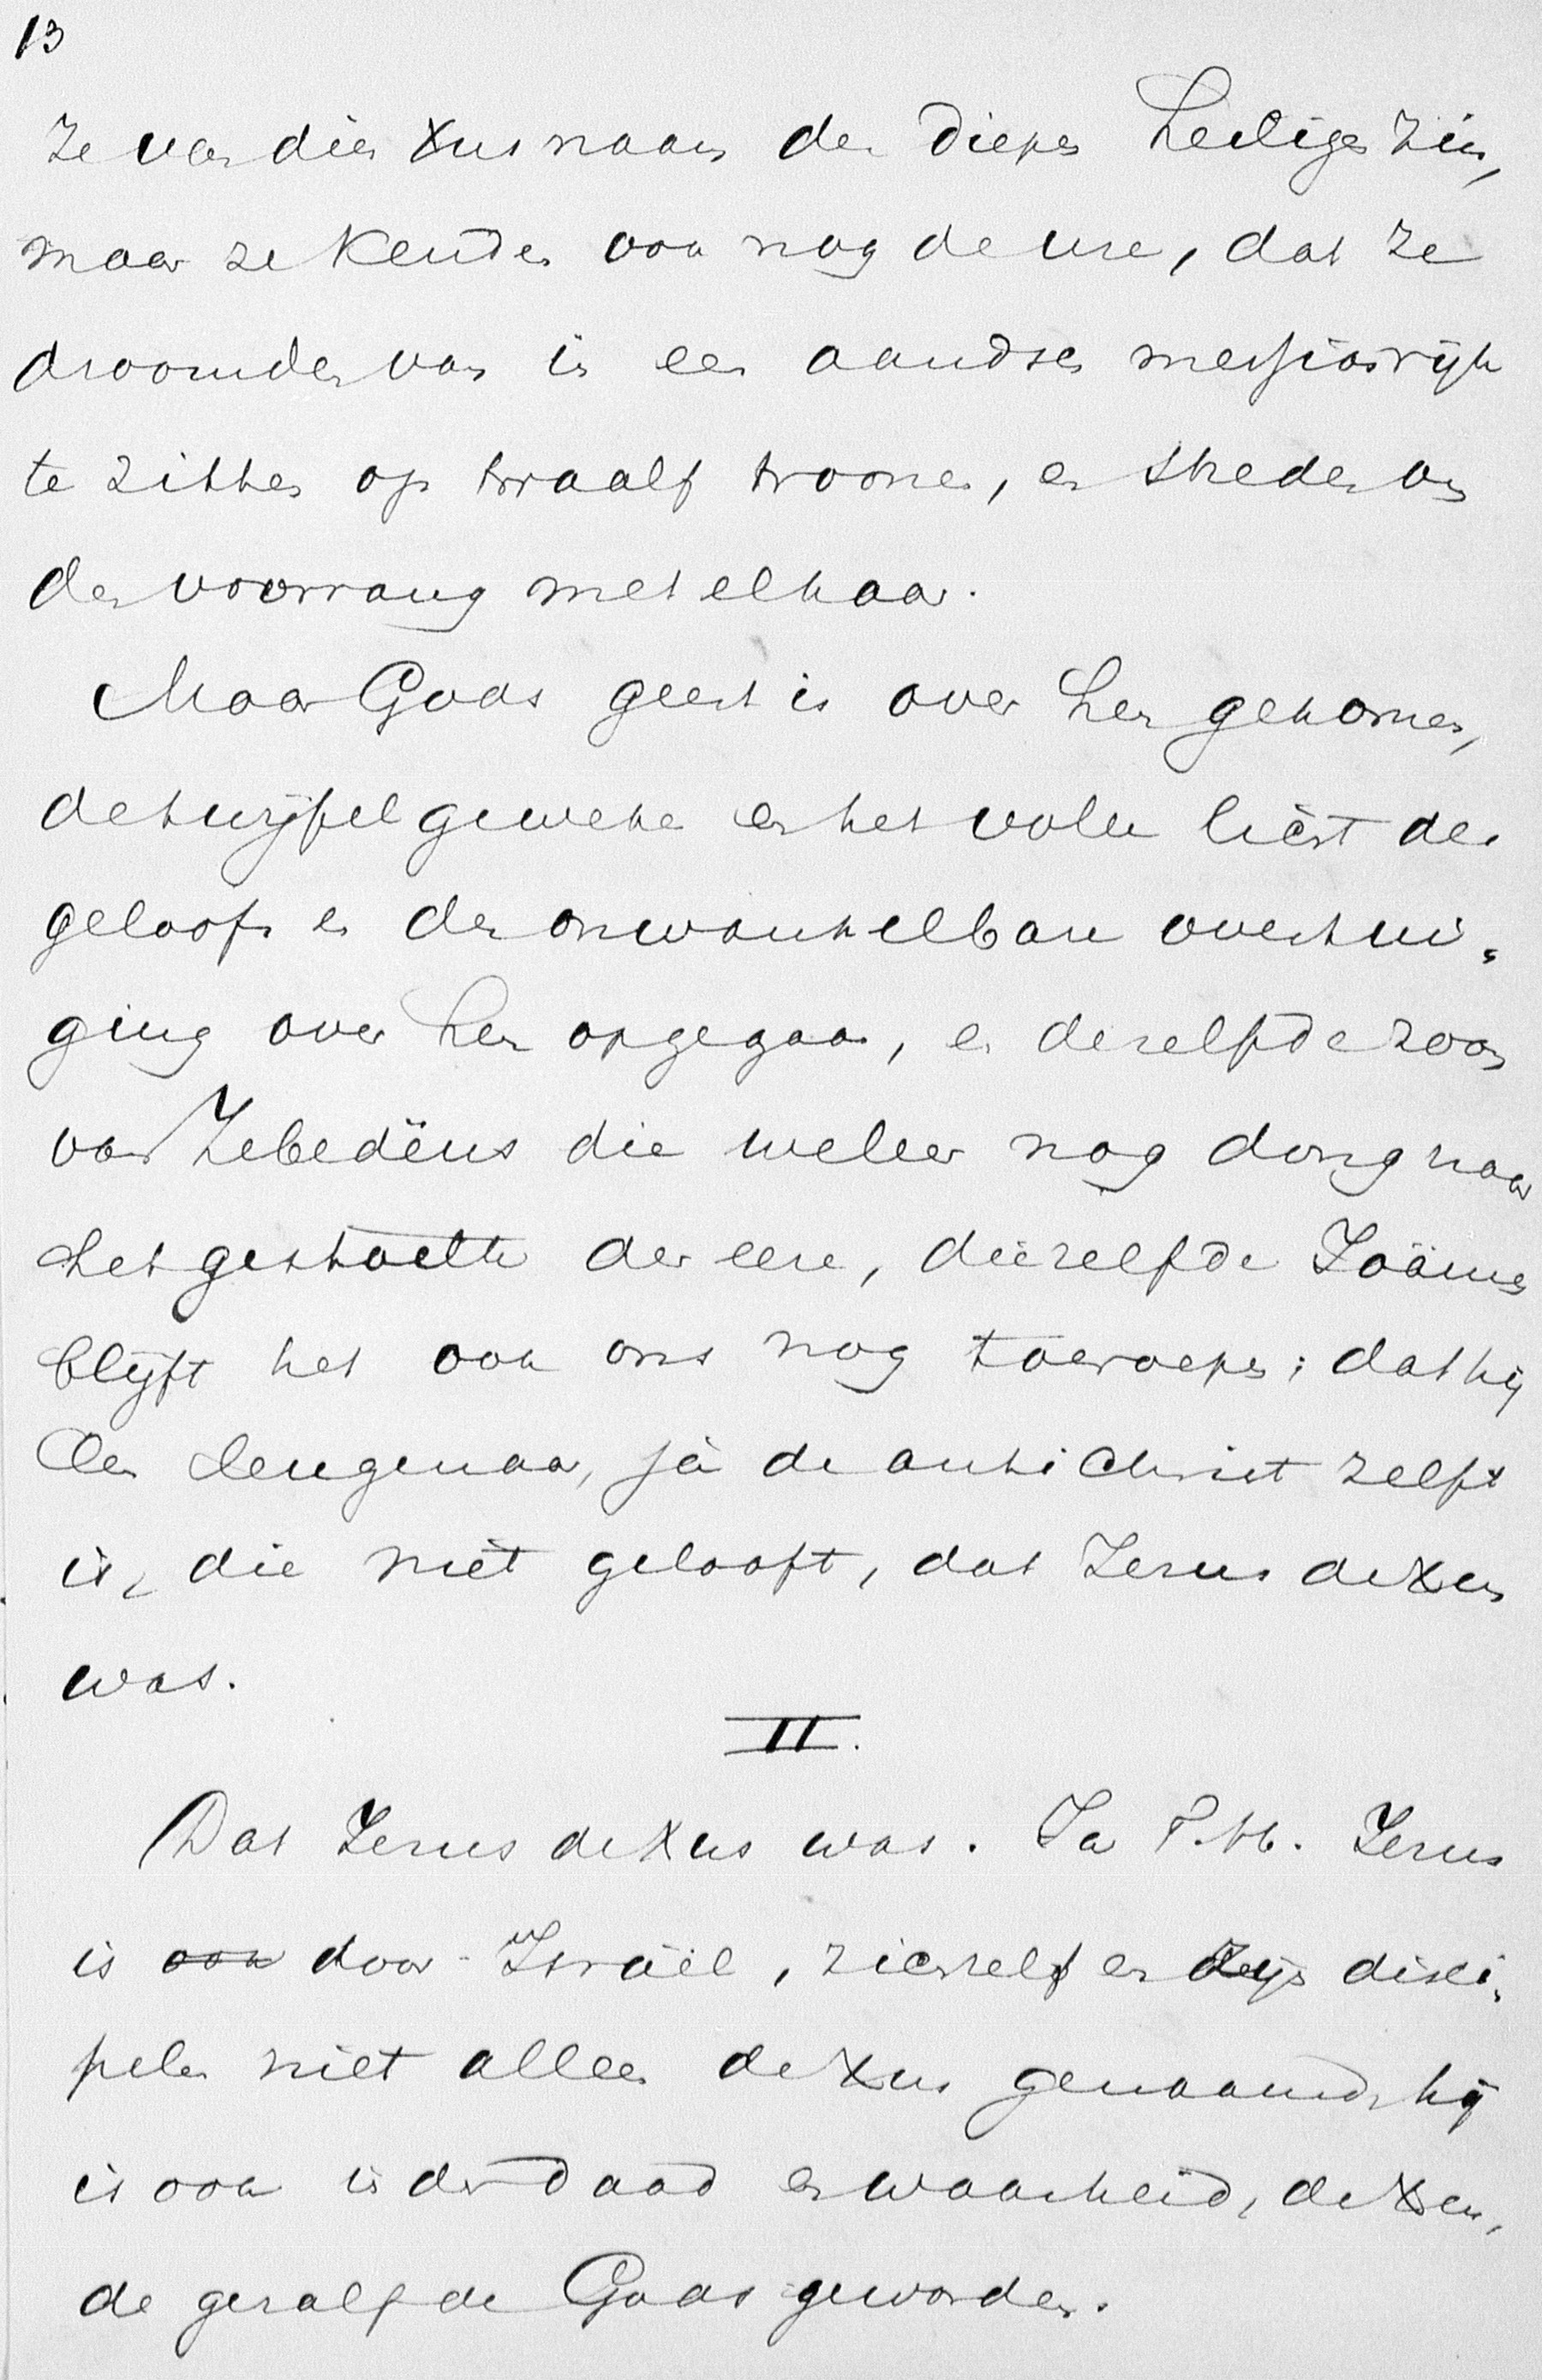 13
ze van dien Xus naam den diepen heiligen zin,
maar ze kenden ook nog de ure, dat ze
droomden van in een aardsch messiasrijk
te zitten op twaalf troonen, en streden om
den voorrang met elkaar.
Maar Gods geest is over hen gekomen,
de twijfel geweken en het volle licht des
geloofs en der onwankelbare overtui-
ging over hen opgegaan, en dezelfde zoon
van Zebedëus die weleer nog dong naar
het gestoelte der eere, diezelfde Joannes
blijft het ook ons nog toeroepen; dat hij
de leugenaar, ja de antiChrist zelfs
is, die niet gelooft, dat Jezus de Xus
was.
II.
Dat Jezus de Xus was. Ja T.H. Jezus
is ook door Israël, zichzelf en zijn disci-
pelen niet alleen de Xus genaamd, hij
is ook in der daad en waarheid, de Xus,
de gezalfde Gods geworden.